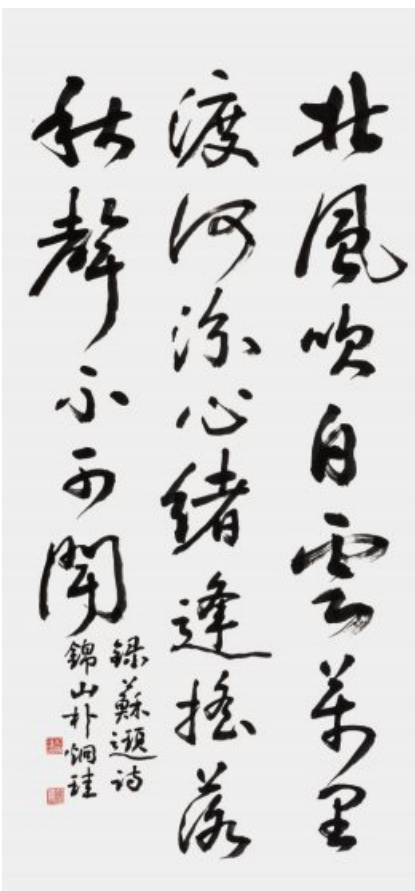 北風吹白雲萬里
渡河汾心緒逢搖落
秋聲不可聞
錄蘇頲詩
錦山朴珪